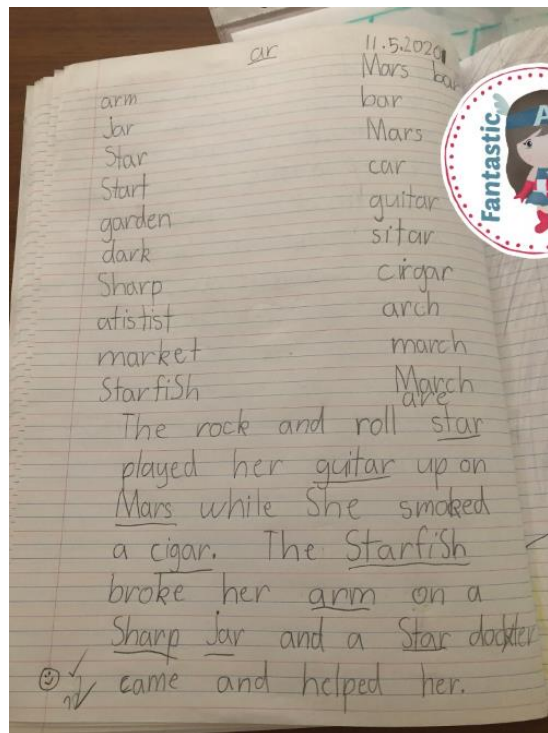 ar
11.5.2020
arm
Jar
Star
Start
garden
dark
Sharp
atistist
market
StarfiSh
Mars bar
bar
Mars
car
guitar
sitar
cirgar
arch
march
March
are
The rock and roll star
played her guitar up on
Mars while She smoked
a cigar. The StarfiSh
broke her arm on a
Sharp Jar and a Star
came and helped her.
Fantastic